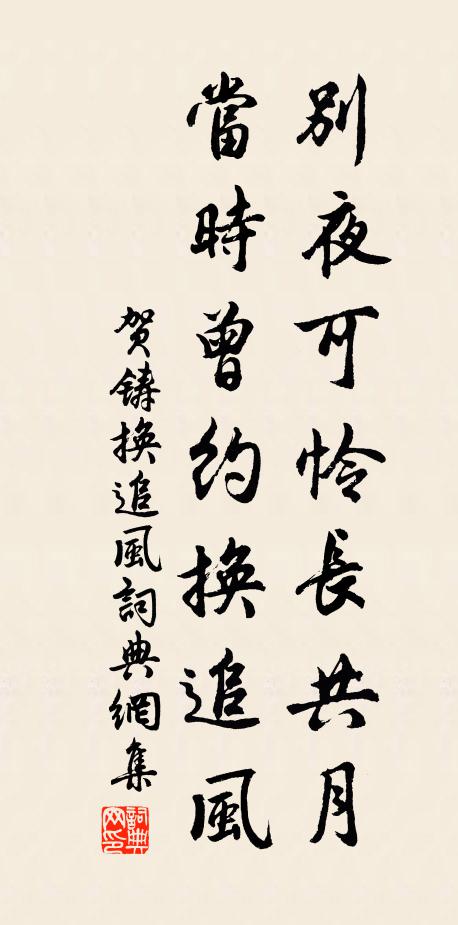 別夜可怜長共月
當時曾約換追風
贺鑄換追風詞典網集
詞典网印